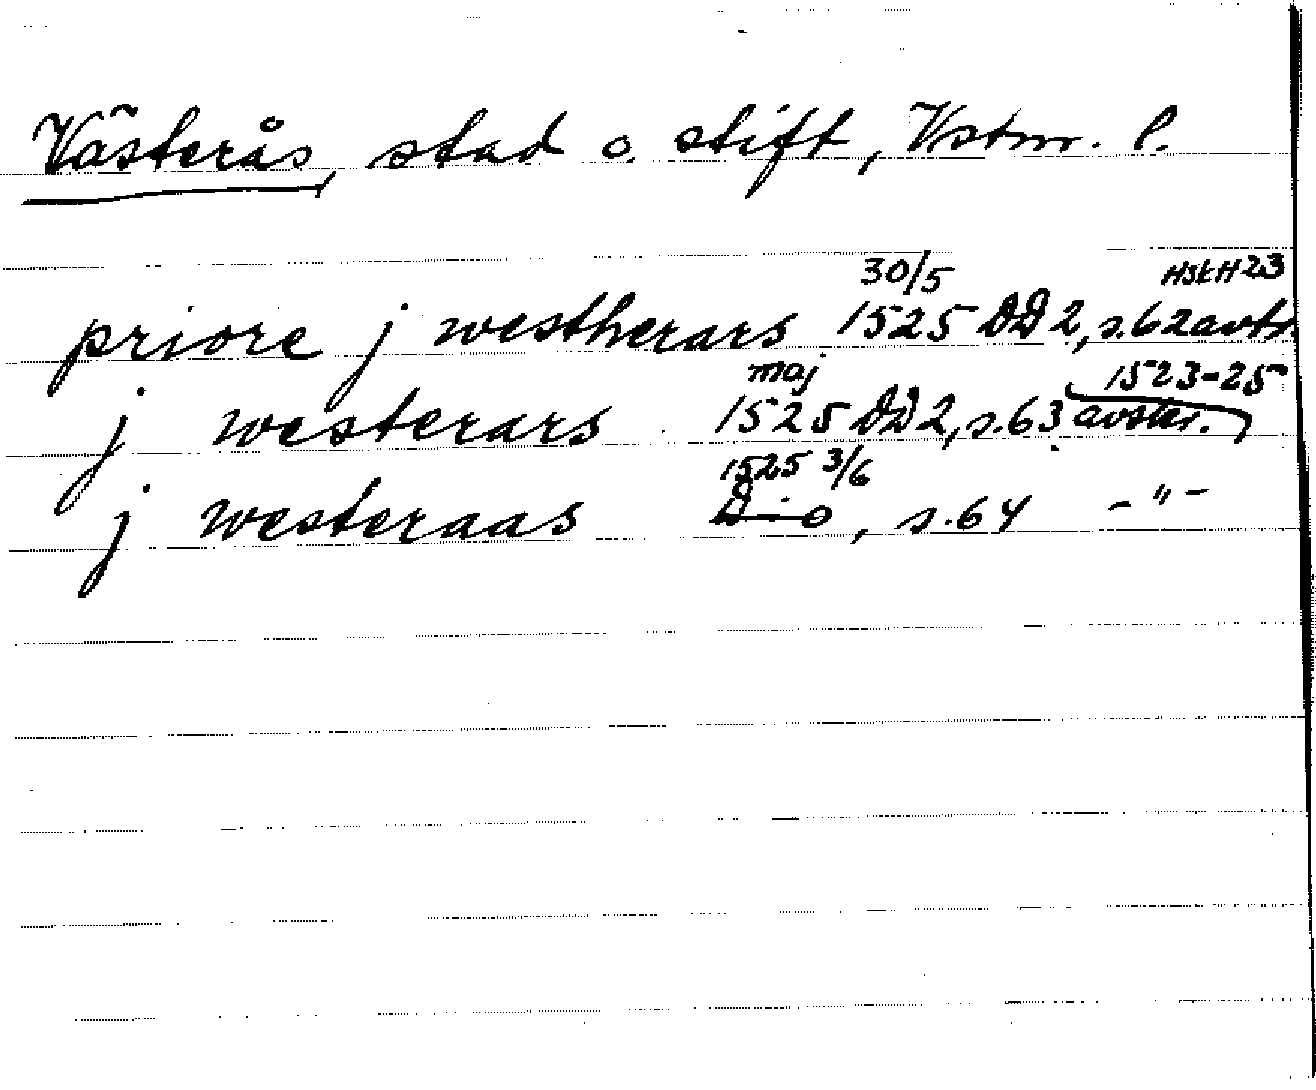 Västerås, stad o. stift, Vstm. l.
30/5 HSkH 23
priore j westherars 1525 DD 2, s.62 avskr
maj 1523-25
j westerars 1525 DD 2, s.63 avskr.
1525 3/6
j westeraas D:o, s.64 -"-